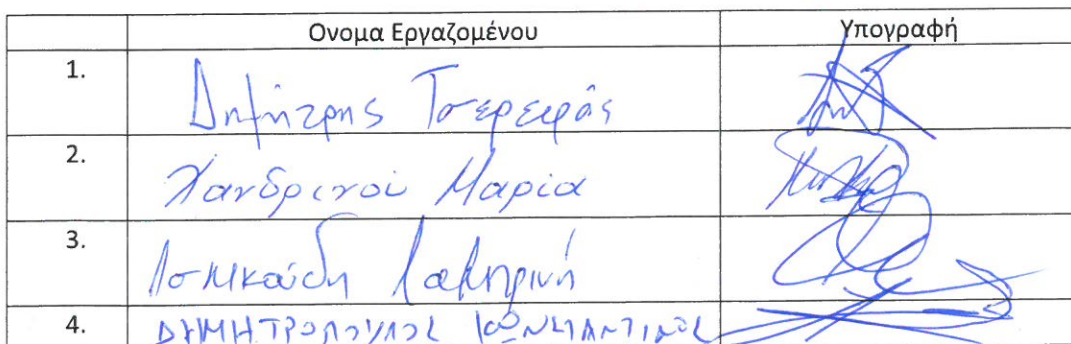 Ονομα Εργαζομένου Υπογραφή
1. Δημήτρης
2. Χανδρινού Μαρία
3. Λαμπρινή
4. ΔΗΜΗΤΡΟΠΟΥΛΟΣ ΚΩΝΣΤΑΝΤΙΝΟΣ